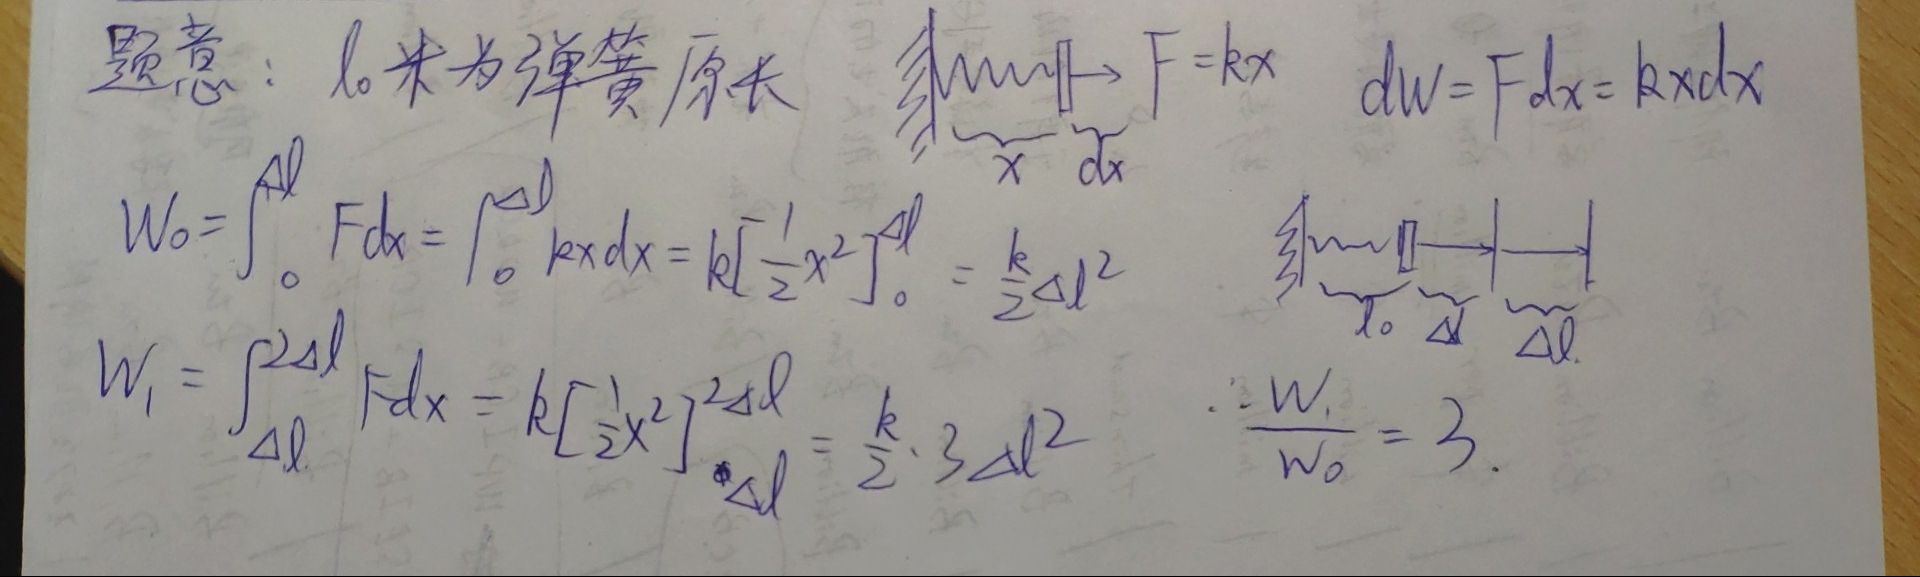 题意：l₀米为弹簧原长 F=kx dW=Fdx=kxdx
x dx
W₀=∫₀^Δl Fdx=∫₀^Δl kxdx=k[½x²]₀^Δl=k/2 Δl²
l₀ Δl Δl
W₁=∫_Δl^2Δl Fdx=k[½x²]_Δl^2Δl=k/2·3Δl² ∴W₁/W₀=3.